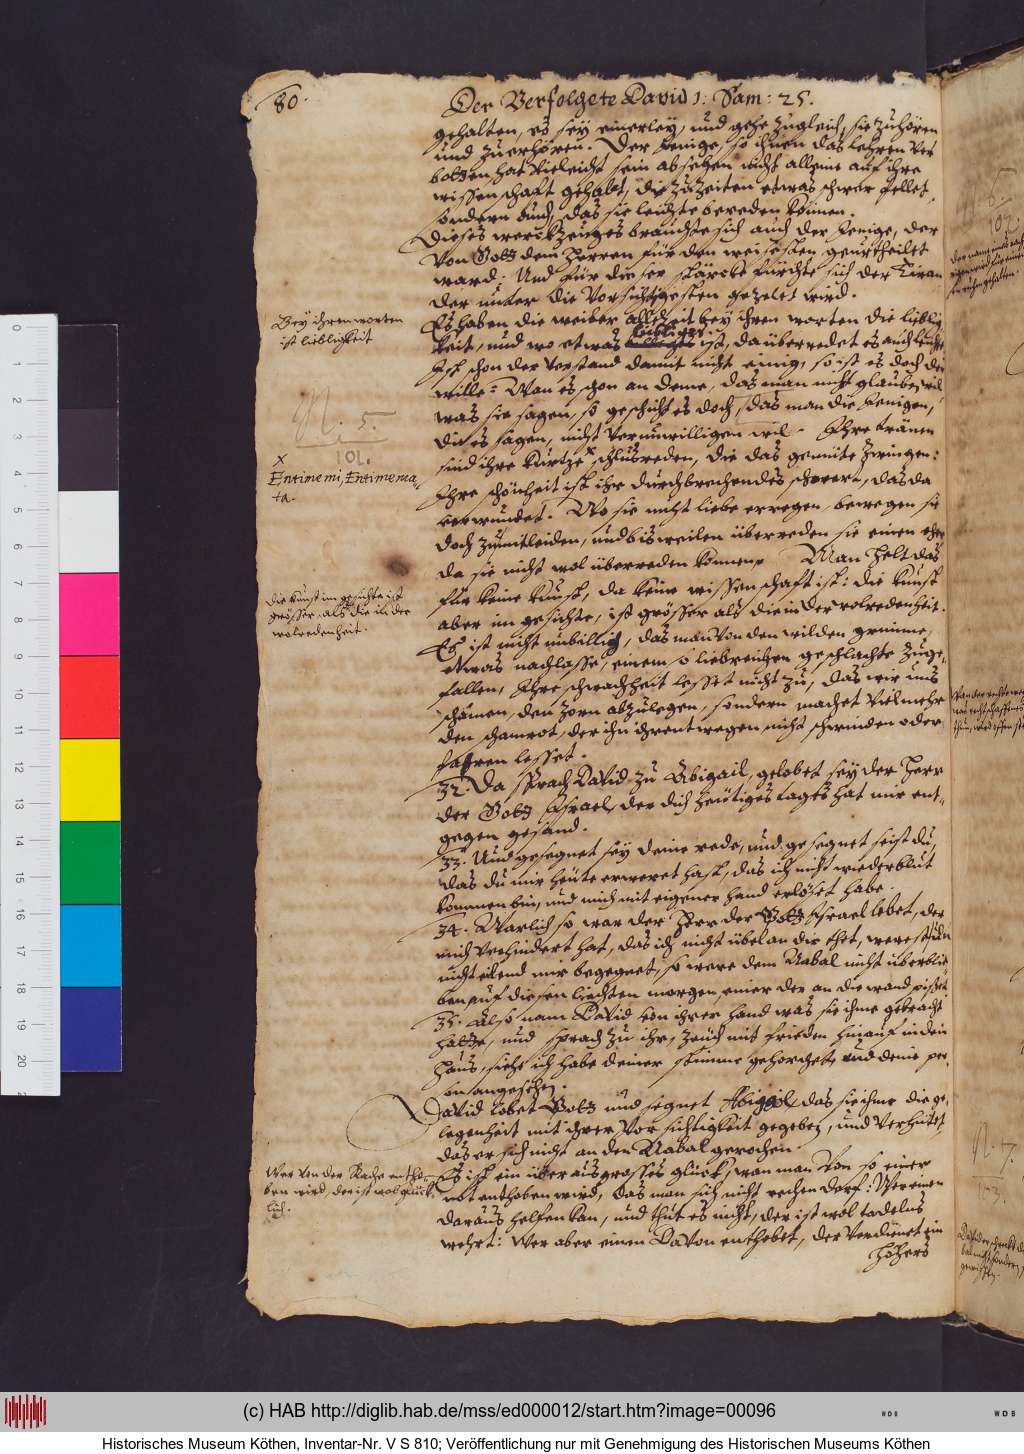 80.
Der Verfolgete David 1. Sam: 25.
gehalten, es sey einerley, und gehe zugleich, sie zuhören
und zuerhören. Der jenige, so ihnen das lehren ver
botten hat vieleicht sein absehen nicht alleine auf ihre
wissenschaft gehabt, die zuzeiten etwas schwer fellet,
sondern auch, das sie leichte bereden können.
Dieses werckzeuges brauchte sich auch der jenige, der
von Gott dem Herren für den weisesten geurtheilet
ward. Und für dieser stärcke fürchte sich der Tiran
der unter die Vorsichtigesten gezelet wird.
Es haben die weiber allezeit bey ihren worten die liebli
keit, und wo etwas leibliches ist, da überredet es auch leicht
Ist schon der verstand damit nicht einig, so ist es doch der
wille: Wan es schon an deme, das man nicht glauben wil
was sie sagen, so geschicht es doch, das man die jenigen,
die es sagen, nicht verunwilligen wil. Ihre tränen
sind ihre kurtze x schlusreden, die das gemüte zwingen:
Ihre schönheit ist ihr durchbrechendes schwert, das da
verwundet. Wo sie nicht liebe erregen, bewegen sie
doch zumitleiden, und bisweilen überreden sie einen eher
da sie nicht wol überreden können. Man helt das
für keine kunst, da keine wissenschaft ist: die kunst
aber im gesichte, ist grösser als die in der wolredenheit.
Es ist nicht unbillich, das man von den wilden grimme,
etwas nachlasse, einem so liebreichen geschlachte zuge-
fallen, Ihre schwachheit lesset nicht zu, das wir uns
schämen, den zorn abzulegen, sondern machet vielmehr
den schamrot, der ihn ihrentwegen nicht schwinden oder
fahren lesset.
32. Da sprach David zu Abigail, gelobet sey der Herr
der Gott Israel, der dich heutiges tages hat mir ent-
gegen gesand.
33. Und gesegnet sey deine rede, und gesegnet seist du,
das du mir heute erweret hast, das ich nicht wieder blut
kommen bin, und mich mit eigener hand erlöset habe.
34. Warlich so war der Herr der Gott Israel lebet, der
mich verhindert hat, das ich nicht übel an dir thet, werestu
nicht eilend mir begegnet, so were dem Nabal nicht überblie-
ben auf diesen liechten morgen, einer der an die wand pisset.
35. Also nam David von ihrer hand was sie ihme gebracht
hatte, und sprach zu ihr, zeuch mit frieden hinauf in dein
haus, siehe ich habe deiner stimme gehorchet, und deine per
son angesehen.
David lobet Gott und segnet Abigail, das sie ihme die ge
legenheit mit ihrer Vorsichtigkeit gegeben, und verhütet,
das er sich nicht an den Nabal gerochen.
Es ist ein überausgrosses glück, wan man von so einer
not enthoben wird, das man sich nicht rechen darf: Wer einen
daraus helfen kan, und thut es nicht, der ist wol tadelns
wehrt: Wer aber einen davon enthebet, der verdienet ein
höhers
Bey ihren worten
ist lieblichkeit
N. 5.
101.
x
Entimemi, Entimema-
ta.
die kunst im gesichte ist
grösser, als die in der
wolredenheit.
Wer von der Rache entho-
ben wird, der ist wol glück-
lich.
102.
N. 7.
(c) HAB http://diglib.hab.de/mss/ed000012/start.htm?image=00096
Historisches Museum Köthen, Inventar-Nr. V S 810; Veröffentlichung nur mit Genehmigung des Historischen Museums Köthen